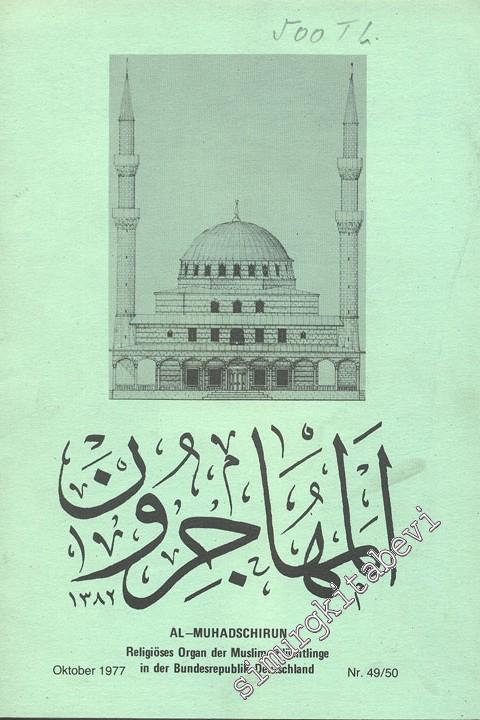 500 TL.
المهاجرون
١٣٨٢
AL-MUHADSCHIRUN
Religiöses Organ der Muslime Flüchtlinge
in der Bundesrepublik Deutschland
Oktober 1977
Nr. 49/50
simurgkitabevi